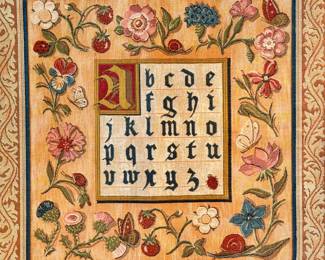 A b c d e
f g h i
j k l m n o
p q r s t u
v w x y z